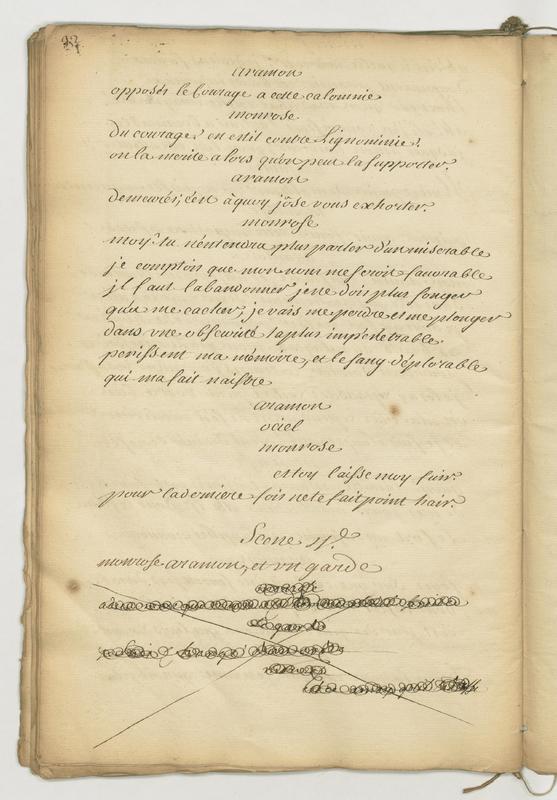 aramon
opposés le Courage a cette calomnie
monrose
du courage? en est il contre l'ignominie?
on la merite alors qu'on peut la supporter.
aramon
demeurés; c'est à quoy j'ôse vous exhorter.
monrose
moy? tu n'entendra plus parler d'un miserable
je comptois que mon nom me seroit favorable
jl faut l'abandonner je ne dois plus songer
qu'a me cacher, je vais me perdre et me plonger
dans vne obscurité la plus impénetrable.
perissent ma mémoire, et le sang déplorable
qui ma fait naistre
aramon
ô ciel
monrose
et toy laisse moy fuir.
pour la derniere fois ne te fait point hair.
Scene
monrose aramon, et vn garde